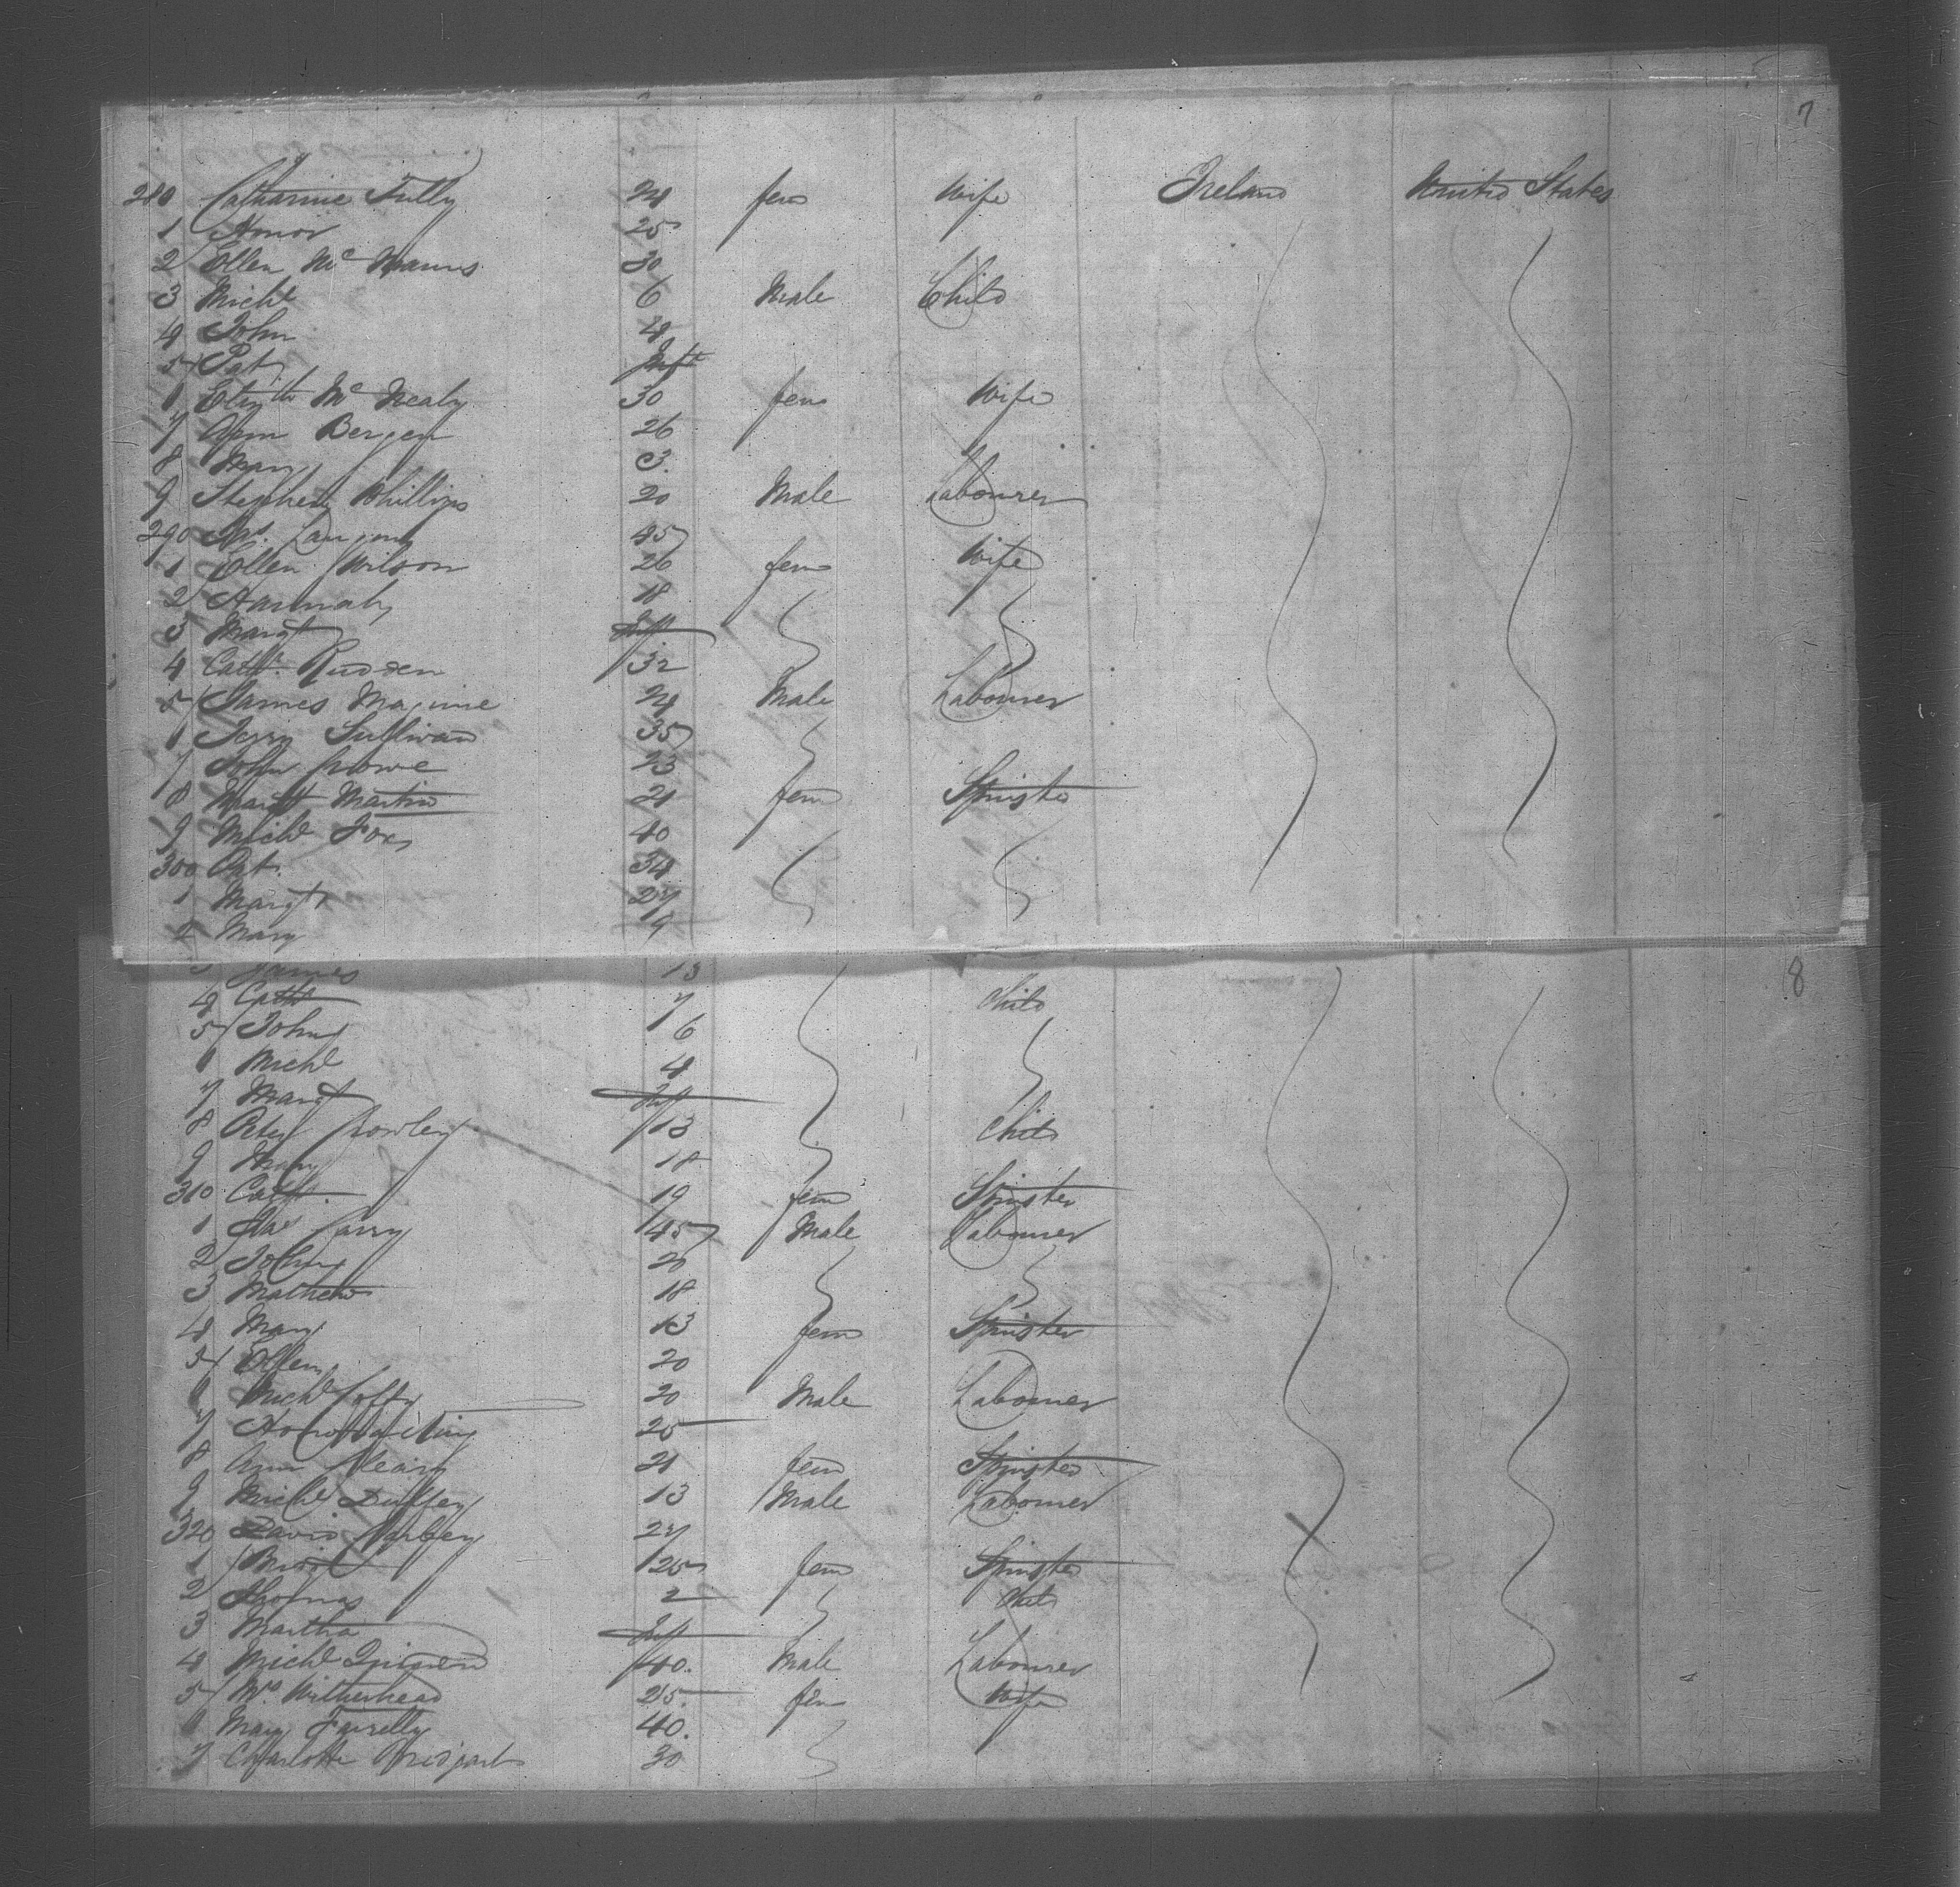 7
280 Catharine Tully 24 fem Wife Ireland United States
1 Honor 25
2 Ellen McManus 30
3 Michl 6 Male Child
4 John 4
5 Pat Inft
6 Elizth McNealy 30 fem Wife
7 Ann Bergen 26
8 Mary 3
9 Stephen Phillips 20 Male Labourer
290 45
1 Ellen Wilson 26 fem Wife
2 Hannah 18
3 Margt Inft
4 Cath. Rudden 32
5 James Maguire 24 Male Labourer
6 Jerry Sullivan 35
7 John Crowe 23
8 Margt Martin 21 fem Spinster
9 Michl Fox 40
300 Pat. 34
1 Margt 27
2 Mary 9
8
3 James 13
4 Cath 7 Child
5 John 6
6 Michl 4
7 Margt Inft
8 Peter Crowley 13 Child
9 Mary 18
310 Cath. 19 fem Spinster
1 Carry 45 Male Labourer
2 John 20
3 Mathew 18
4 Mary 13 fem Spinster
5 Ellen 20
6 Michl Coffy 20 Male Labourer
7 Honor 25
8 Ann Cleary 21 fem Spinster
9 Michl Duffey 13 Male Labourer
320 David 27
1 25 fem Spinster
2 Thomas 2 Child
3 Martha Inft
4 Michl 40. Male Labourer
5 Mrs Witherhead 25. fem Wife
6 Mary Farrelly 40.
7 Charlotte 30